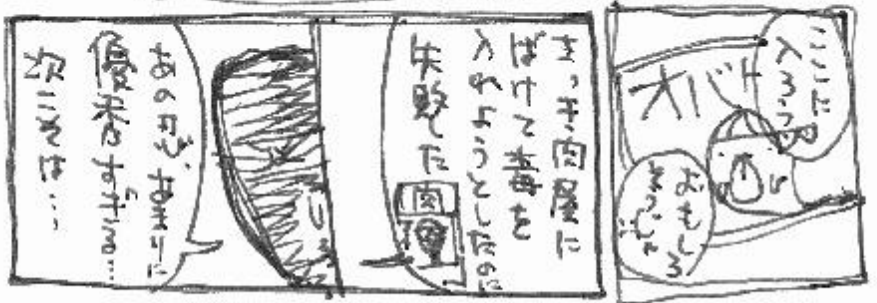 ここに
入ろっ
オバケ
おもしろ
そうじゃ
さっき肉屋に
ばけて毒を
入れようとしたのに
失敗した
肉
あまりに
優秀すぎる…
次こそは…